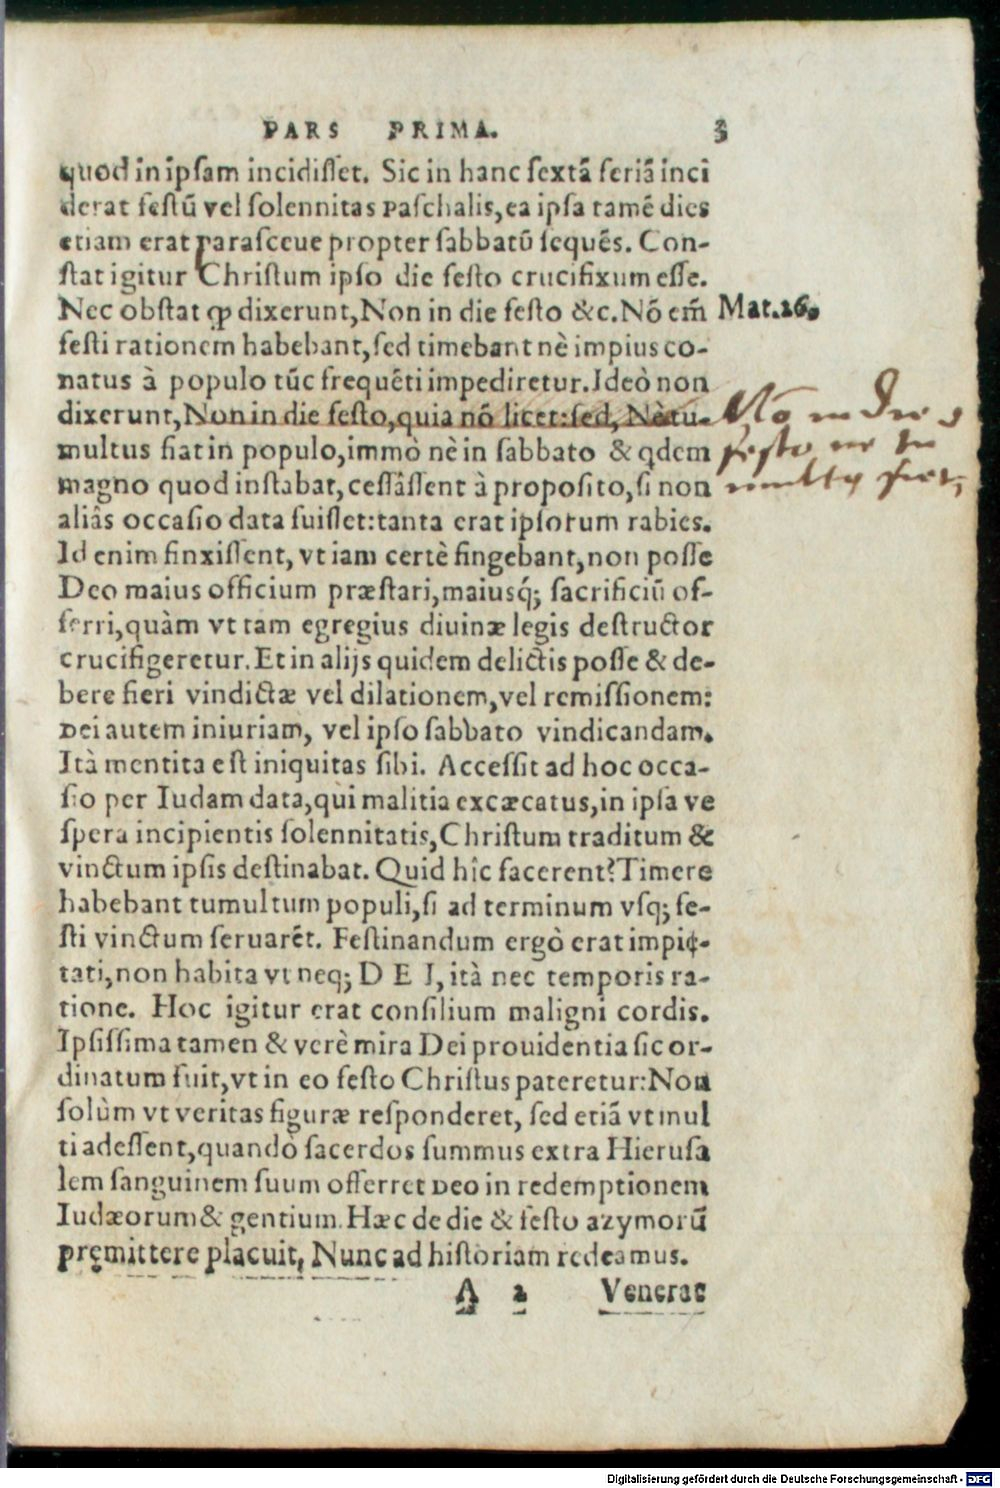 PARS PRIMA. 3
quod in ipsam incidisset. Sic in hanc sextā seriā inci
derat festū vel solennitas Paschalis, ea ipsa tamē dies
etiam erat parasceue propter sabbatū sequēs. Con-
stat igitur Christum ipso die festo crucifixum esse.
Nec obstat ꝙ dixerunt, Non in die festo &c. Nō em̄ Mat. 26.
festi rationem habebant, sed timebant nè impius co-
natus à populo tūc frequēti impediretur. Ideò non
dixerunt, Non in die festo, quia nō licet: sed, Nè tu-
multus fiat in populo, immò nè in sabbato & qdem
magno quod instabat, cessâssent à proposito, si non
aliâs occasio data fuisset: tanta erat ipsorum rabies.
Id enim finxissent, vt iam certè fingebant, non posse
Deo maius officium præstari, maiusq́; sacrificiū of-
ferri, quàm vt tam egregius diuinæ legis destructor
crucifigeretur. Et in alijs quidem delictis posse & de-
bere fieri vindictæ vel dilationem, vel remissionem:
Dei autem iniuriam, vel ipso sabbato vindicandam.
Ità mentita est iniquitas sibi. Accessit ad hoc occa-
sio per Iudam data, qui malitia excæcatus, in ipsa ve
spera incipientis solennitatis, Christum traditum &
vinctum ipsis destinabat. Quid hîc facerent? Timere
habebant tumultum populi, si ad terminum vsq; fe-
sti vinctum seruarēt. Festinandum ergò erat impię-
tati, non habita vt neq; DEI, ità nec temporis ra-
tione. Hoc igitur erat consilium maligni cordis.
Ipsissima tamen & verè mira Dei prouidentia sic or-
dinatum fuit, vt in eo festo Christus pateretur: Non
solùm vt veritas figuræ responderet, sed etiā vt mul
ti adessent, quandò sacerdos summus extra Hierusa
lem sanguinem suum offerret Deo in redemptionem
Iudæorum & gentium. Hæc de die & festo azymorū
pręmittere placuit, Nunc ad historiam redeamus.
A 2 Venerae
Nō in die
festo ne tu
multus fieret
Digitalisierung gefördert durch die Deutsche Forschungsgemeinschaft - DFG